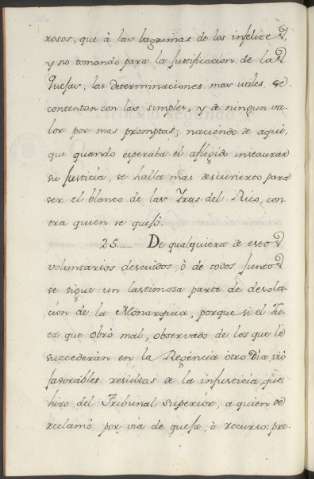 rosos, que á las lagrimas de los infelices,
y no tomando para la justificacion de las
Quejas, las determinaciones mas utiles, se
contentan con las simples, y de ningun va-
lor por mas promptas; naciendo de aqui,
que quando esperaba el afligido instaurar
su Justicia, se halla mas descubierto para
ser el blanco de las Iras del Rico, con-
tra quien se quejó.
25. De qualquiera de estos
voluntarios descuidos, ò de todos juntos
se sigue un lastimosa parte de desola-
cion de la Monarquia, porque si el Jue-
ez que obró mal, observado de los que le
succederán en la Regencia otro Dia, vió
favorables resultas de la injusticia, que
hizo del Tribunal Superior, a quien se
reclamó por via de queja, ò recurso; pre-